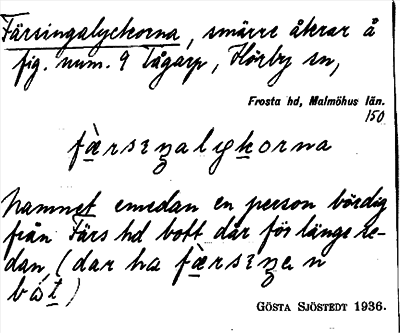 Färsingalyckorna, smärre åkrar å
fig. num. 9 Tågarp, Hörby sn,
Frosta hd, Malmöhus län.
150
fæ̀rsıŋalykorna
Namnet emedan en person bördig
från Färs hd bott där för länge se-
dan, (dar ha fæ̀rsıŋen
bót)
GÖSTA SJÖSTEDT 1936.